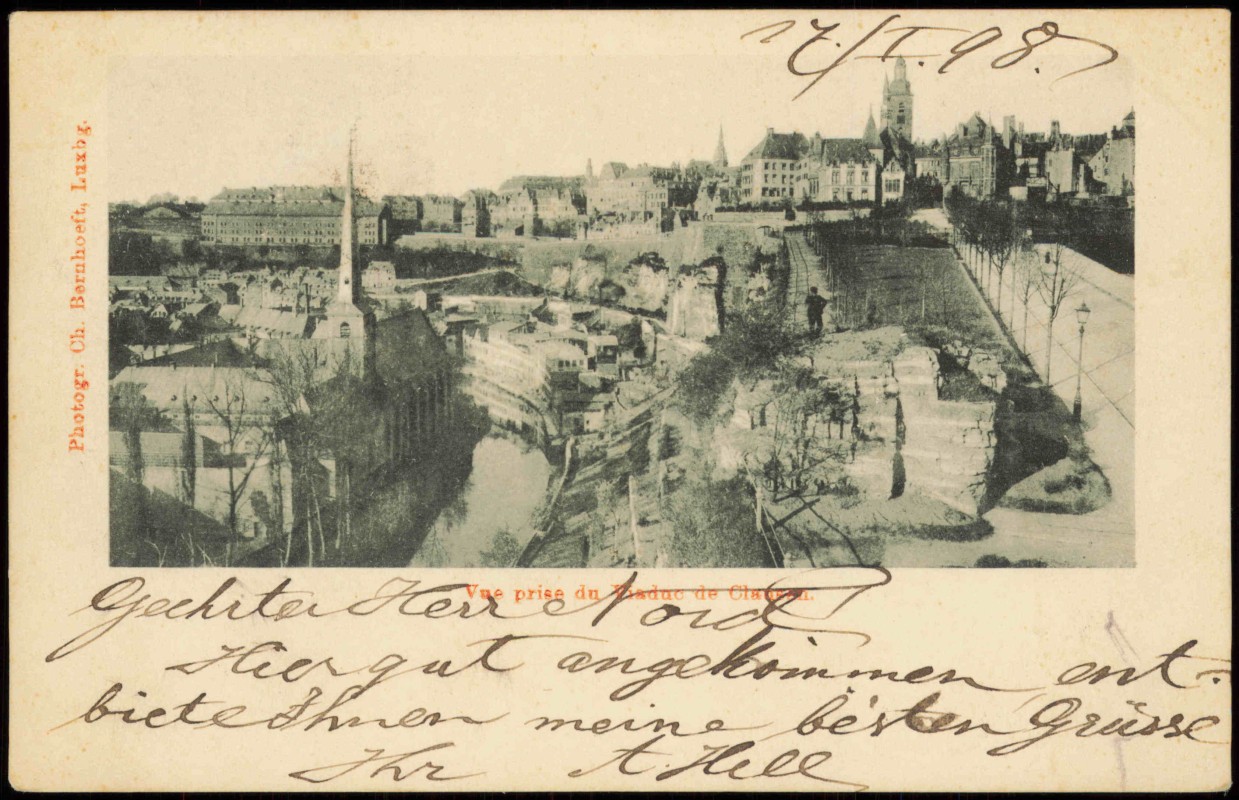 17./I.98.
Photogr. Ch. Bernhoeft, Luxbg.
Vue prise du Viaduc de Clausen.
Geehrter Herr Nord
Hier gut angekommen ent-
biete Ihnen meine besten Grüsse
Ihr A. Hell